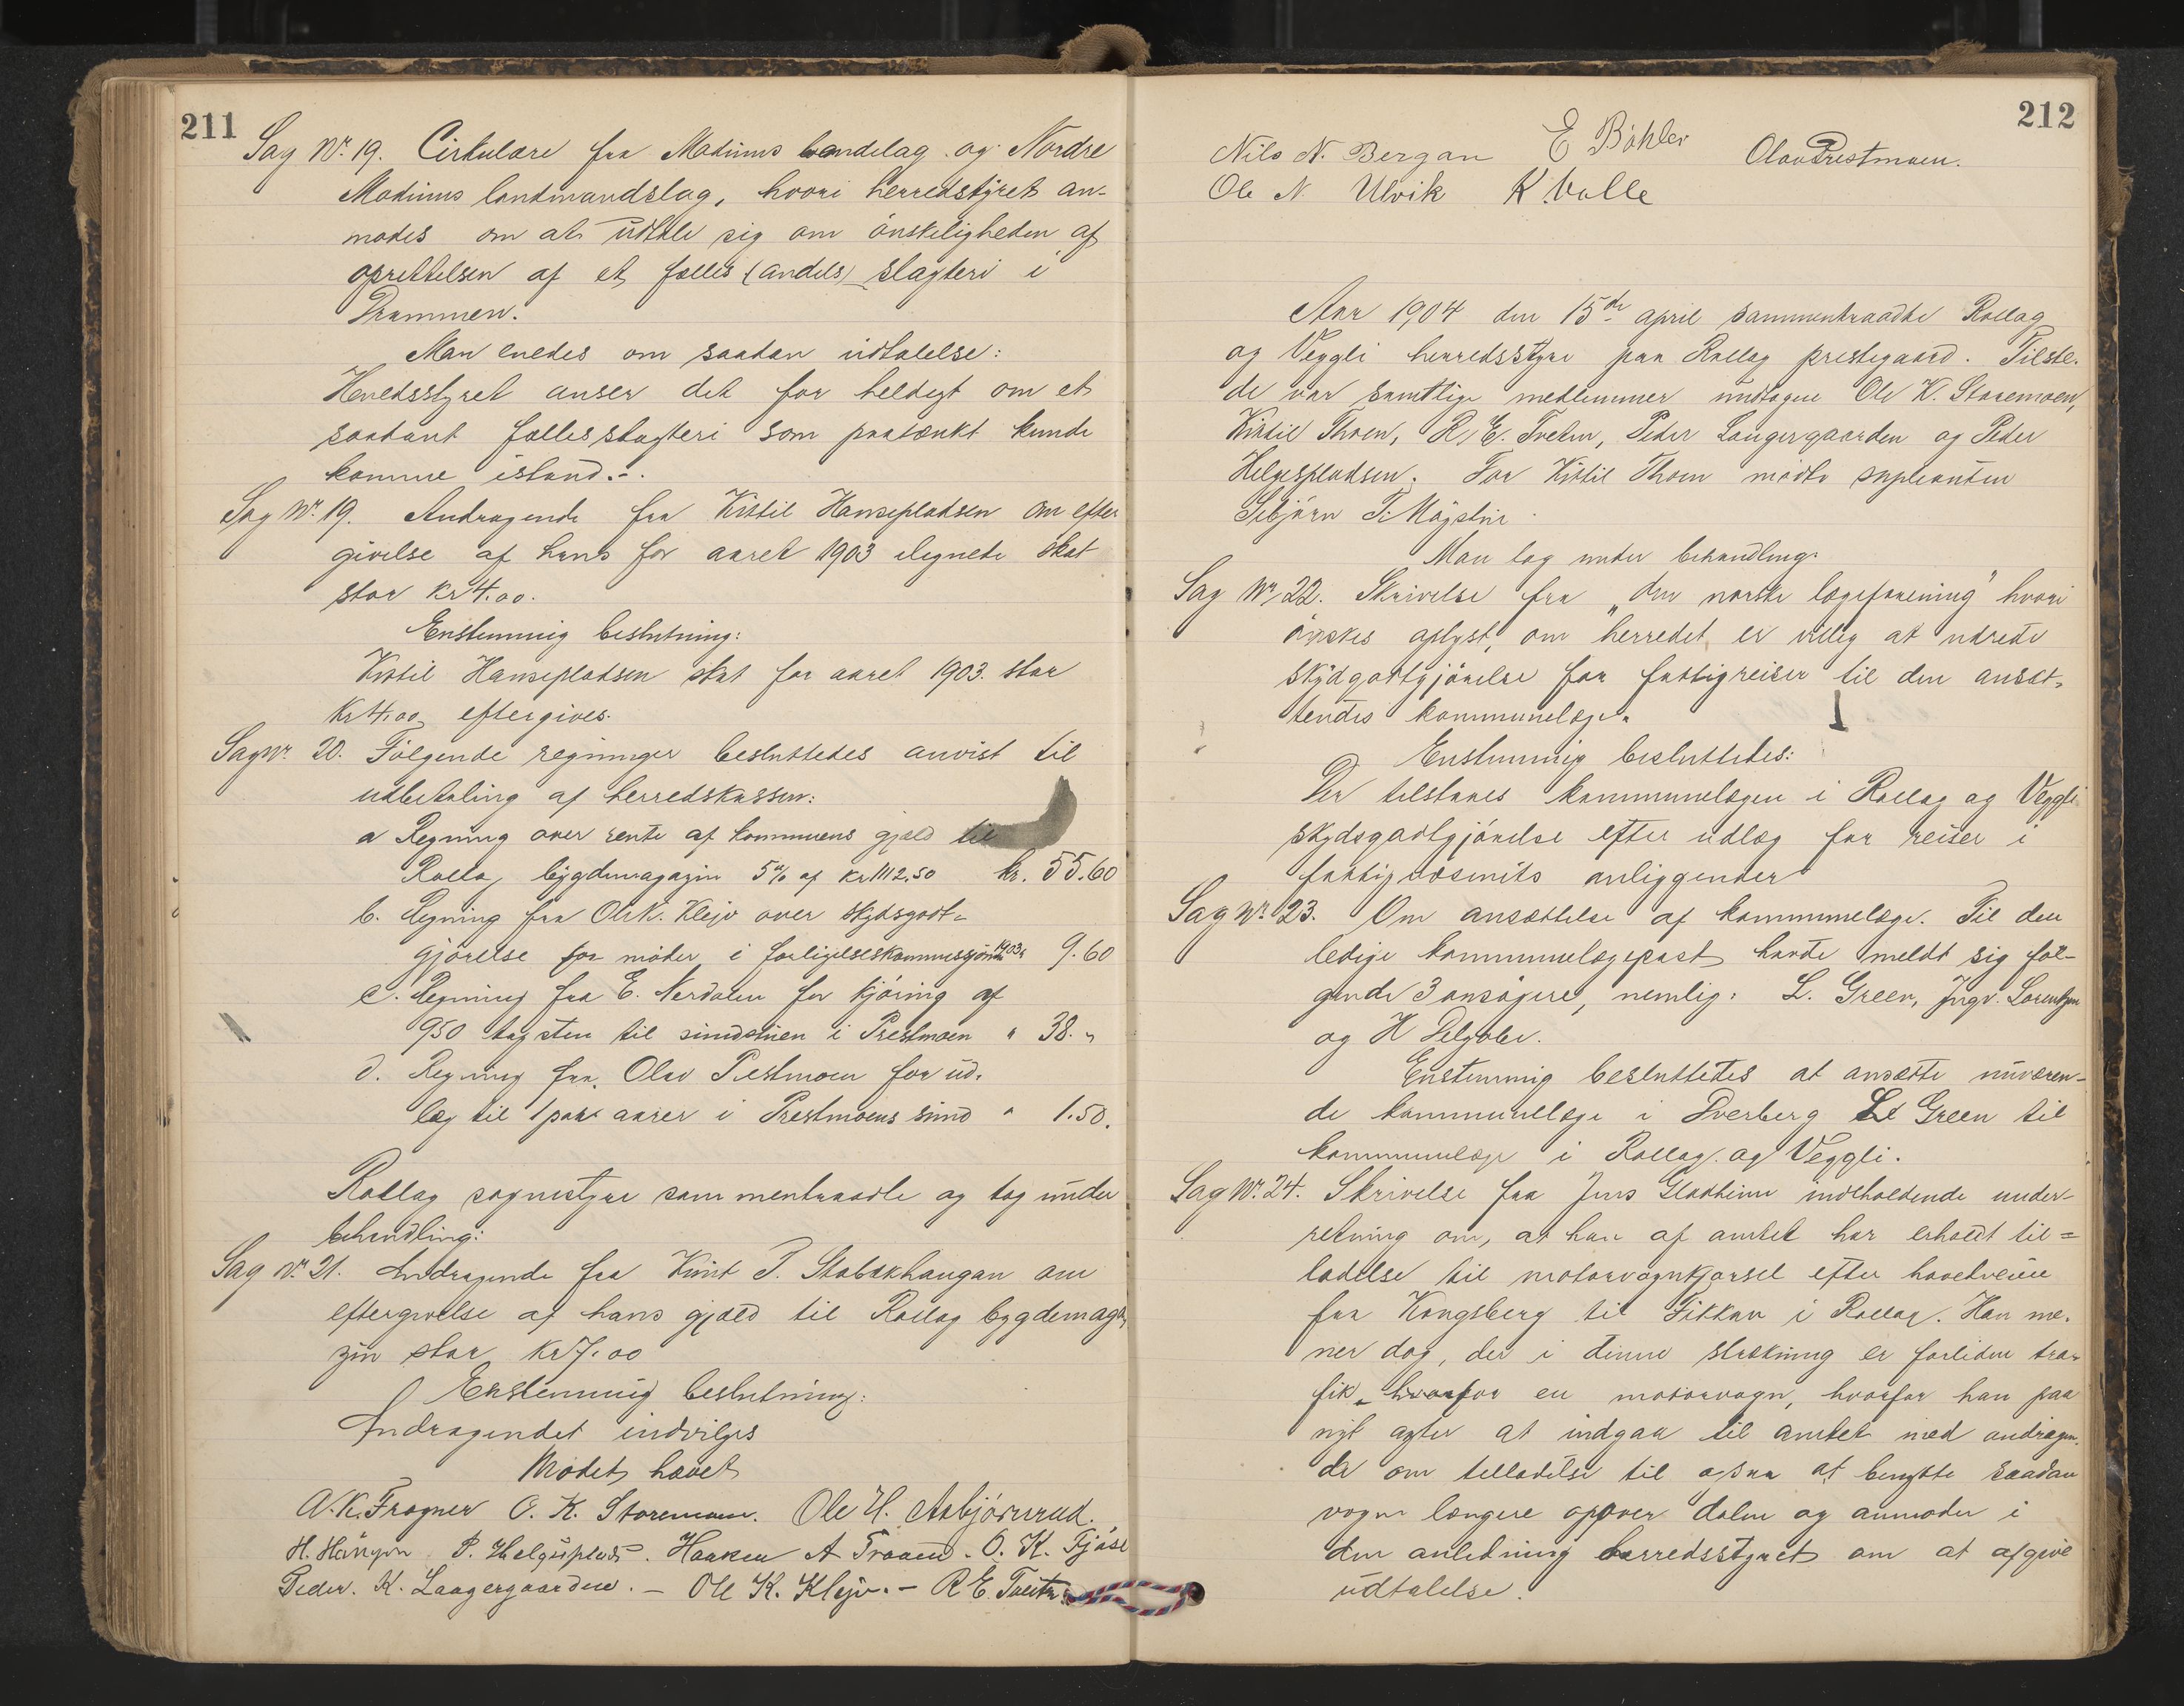 211
Sag Nr. 19. Cirkulære fra Modums landslag og Nordre
Modums landmandslag, hvori herredstyret an-
modes om at udtale sig om ønskeligheden af
oprettelsen af et fælles (andels) slagteri i
Drammen.
Man enedes om saadan udtalelse:
Herredsstyret anser det for heldigt om et
saadant fællesslagteri som paatænkt kunde
komme istand.-.
Sag Nr. 19. Andragende fra Kittil Hansepladsen om efter
givelse af hans for aaret 1903 ilignede skat
stor kr 4.00.
Enstemmig beslutning:
Kittil Hansepladsen skat for aaret 1903. stor
Kr 4.00 eftergives.
Sag Nr. 20. Følgende regninger besluttedes anvist til
udbetaling af herredskassen:
a Regning over rente af kommunens gjæld til
Rollag bygdemagazin 5% af kr 1112.50 kr. 55.60
b. Regning fra Ole K. Klejv over skydsgodt-
gjørelse for møder i forligelseskommissjonen 1903 " 9.60
c. Regning fra E. Nerdalen for kjøring af
950 tagsten til sundstuen i Prestmoen " 38. "
d. Regning fra Olav Prestmoen for ud-
læg til 1 par aarer i Prestmoens sund " 1.50.
Rollag sognestyre sammentraadte og tog under
behandling:
Sag Nr. 21. Andragende fra Knut P. Stabækhaugan om
eftergivelse af hans gjæld til Rollag bygdemaga
zin stor kr 7.00
Enstemmig beslutning:
Andragendet indvilges
Mødet hævet
A. K. Fragner O. K. Storemoen. Ole H. Asbjørnrud.
H. Helgesplads. Haaken A Traaen. O. K. Fjøse
Peder. K. Laagergaarden. - Ole K. Klejv. - R E Tveiten
212
Nils N. Bergan E Bøhler Olav Prestmoen.
Ole N. Ulvik K. Valle
Aar 1904 den 15de april sammentraadte Rollag
og Veggli herredsstyre paa Rollag prestegaard. Tilste-
de var samtlige medlemmer undtagen Ole K. Storemoen,
Kittil Thoen, R. E. Tveten, Peder Laugergaarden og Peder
Helgespladsen. For Kittil Thoen mødte supleanten
Sebjørn T. Møgstue
Man tog under behandling:
Sag Nr. 22. Skrivelse fra "den norske lægeforening" hvori
ønskes oplyst, om herredet er villig at udrede
skydgodtgjørelse for fattigreiser til den ansæt-
tendes kommunelæge.
Enstemmig besluttedes:
Der tilstaaes kommunelægen i Rollag og Veggli
skydsgodtgjørelse efter udlæg for reiser i
fattigvæsenets anliggender
Sag Nr. 23. Om ansættelse af kommunelæge. Til den
ledige kommunelægepost havde meldt sig føl-
gende 3 ansøgere, nemlig: L. Green, Ingv. Lorentzen
og H
Enstemmig besluttedes at ansætte nuværen-
de kommunelæge i Dverberg L Green til
kommunelæge i Rollag og Veggli.
Sag Nr. 24. Skrivelse fra Jens Gladheim indholdende under-
retning om, at han af amtet har erholdt til=
ladelse til motorvognkjørsel efter hovedveien
fra Kongsberg til Fikkan i Rollag. Han me-
ner dog, der i denne strækning er forliden tra-
fik hvorfor en motorvogn, hvorfor han paa
nyt agter at indgaa til amtet med andragen-
de om tilladelse til ogsaa at benytte saadan
vogn længere opover dalen og anmoder i
den anledning herredsstyret om at afgive
udtalelse.